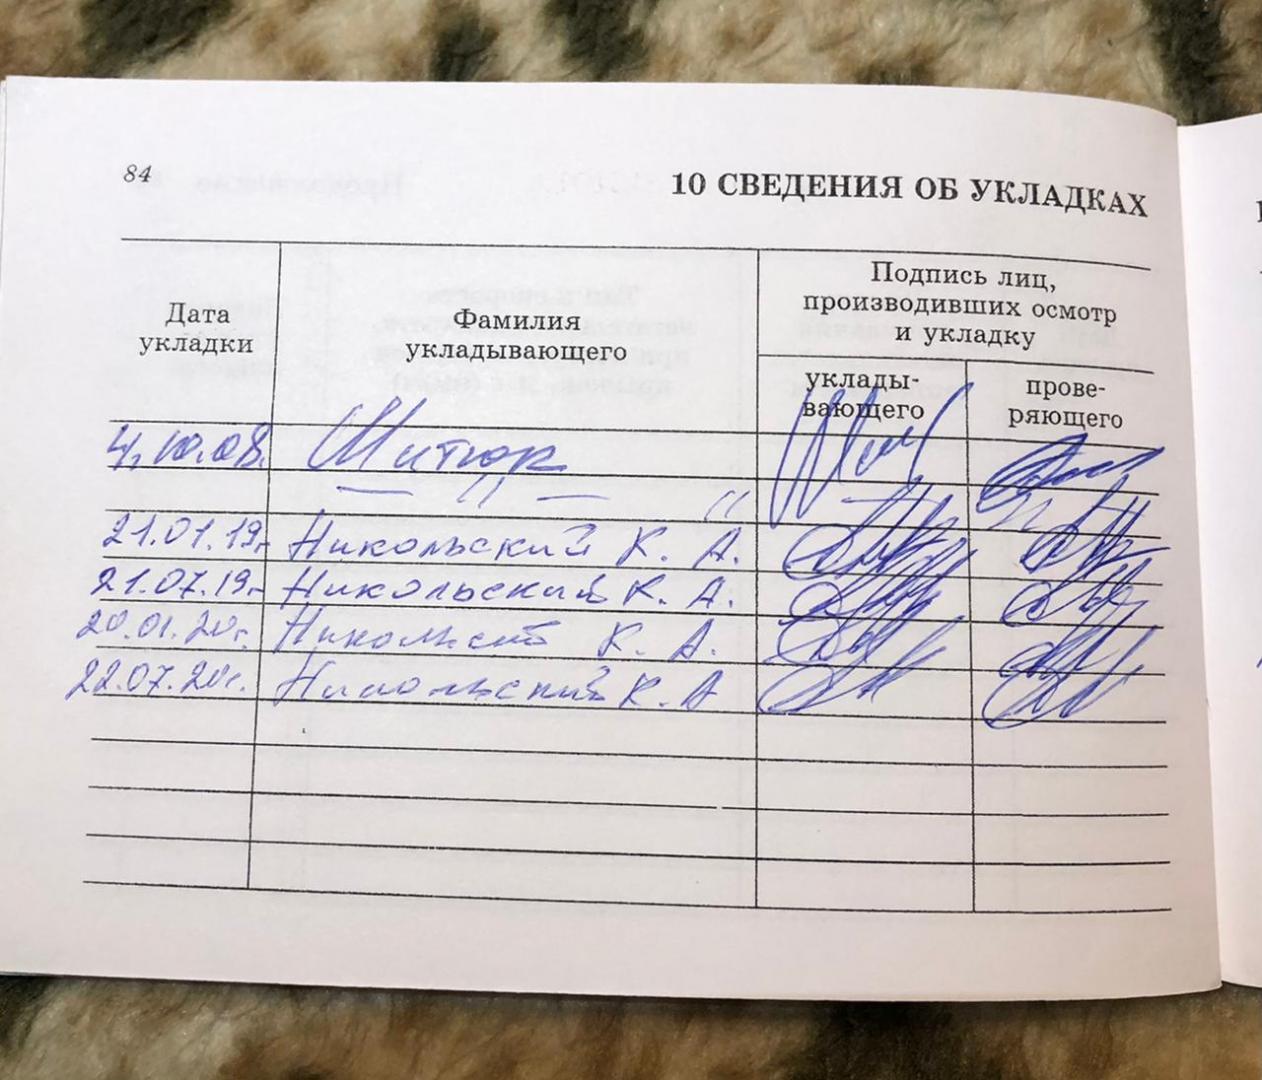 84
10 СВЕДЕНИЯ ОБ УКЛАДКАХ
Дата укладки
Фамилия укладывающего
Подпись лиц, производивших осмотр и укладку
уклады-
вающего
прове-
ряющего
4.10.08.
21.01.19г. Никольский К. А.
21.07.19г. Никольский К. А.
20.01.20г. Никольский К. А.
22.07.20г. Никольский К. А